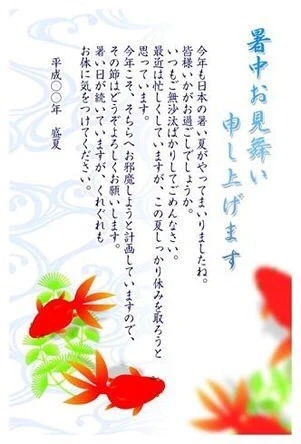 暑中お見舞い
申し上げます
今年も日本の暑い夏がやってまいりましたね。
皆様いかがお過ごしでしょうか。
いつもご無沙汰ばかりしてごめんなさい。
最近は忙しくしていますが、この夏しっかり休みを取ろうと
思っています。
今年こそ、そちらへお邪魔しようと計画していますので、
その節はどうぞよろしくお願いします。
暑い日が続いていますが、くれぐれも
お体に気をつけてください。
平成○○年 盛夏